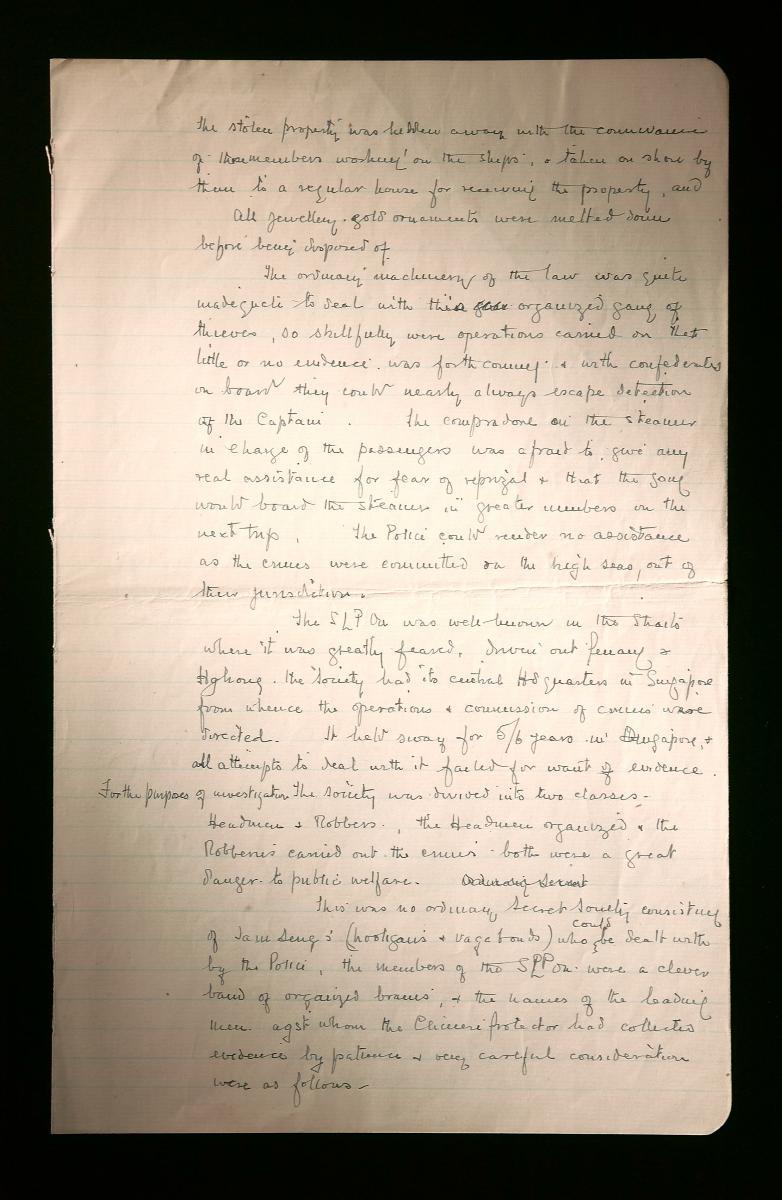 The stolen property was hidden away with the connivance
of the members working on the ships, & taken on shore by
them to a regular house for receiving the property, and
all jewellery. gold ornaments were melted down
before being disposed of
The ordinary machinery of the law was quite
inadequate to deal with this organized gang of
thieves, so skillfully were operations carried on that
little or no evidence was forthcoming & with confederates
on board they could nearly always escape detection
of the Captain . The compradore on the steamer
in charge of the passengers was afraid to give any
real assistance for fear of reprizal & that the gang
would board the steamer in greater numbers on the
next trip. The Police could render no assistance
as the crimes were committed on the high seas, out of
their jurisdiction.
The SLP On was well-known in the Straits
where it was greatly feared. Driven out Penang &
Hgkong. the Society had its central Hdquarters in Singapore
from whence the operations & commission of crimes were
directed. It held sway for 5/6 years in Singapore, &
all attempts to deal with it failed for want of evidence.
For the purposes of investigation The Society was divided into two classes -
Headmen & Robbers. , the Headmen organized & the
Robberies carried out the crimes both were a great
danger to public welfare. Ordinary Secret
This was no ordinary Secret Society consisting
of Sam Seng's (hooligans & vagabonds) who could be dealt with
by the Police, the members of the SLP On were a clever
band of organized brains, & the names of the leading
men agst whom the Chinese Protector had collected
evidence by patience & very careful consideration
were as follows -